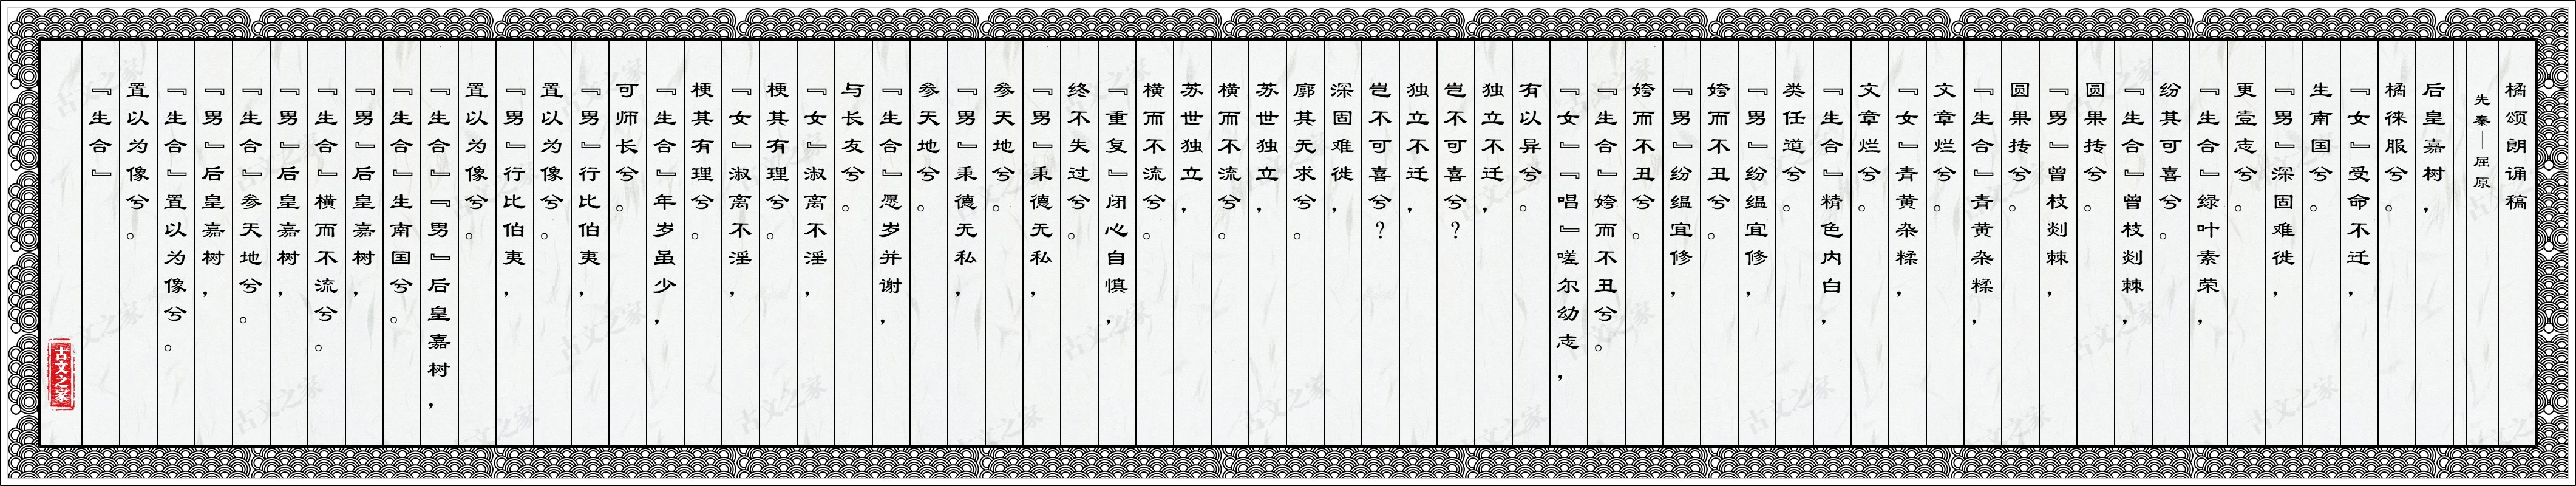 橘颂朗诵稿
先秦—屈原
后皇嘉树，
橘徕服兮。
『女』受命不迁，
生南国兮。
『男』深固难徙，
更壹志兮。
『生合』绿叶素荣，
纷其可喜兮。
『生合』曾枝剡棘，
圆果抟兮。
『男』曾枝剡棘，
圆果抟兮。
『生合』青黄杂糅，
文章烂兮。
『女』青黄杂糅，
文章烂兮。
『生合』精色内白，
类任道兮。
『男』纷缊宜修，
姱而不丑兮。
『男』纷缊宜修，
姱而不丑兮。
『生合』姱而不丑兮。
『女』『唱』嗟尔幼志，
有以异兮。
独立不迁，
岂不可喜兮？
独立不迁，
岂不可喜兮？
深固难徙，
廓其无求兮。
苏世独立，
横而不流兮。
苏世独立，
横而不流兮。
『重复』闭心自慎，
终不失过兮。
『男』秉德无私，
参天地兮。
『男』秉德无私，
参天地兮。
『生合』愿岁并谢，
与长友兮。
『女』淑离不淫，
梗其有理兮。
『女』淑离不淫，
梗其有理兮。
『生合』年岁虽少，
可师长兮。
『男』行比伯夷，
置以为像兮。
『男』行比伯夷，
置以为像兮。
『生合』『男』后皇嘉树，
『生合』生南国兮。
『男』后皇嘉树，
『生合』横而不流兮。
『男』后皇嘉树，
『生合』参天地兮。
『男』后皇嘉树，
『生合』置以为像兮。
置以为像兮。
『生合』
古文之家